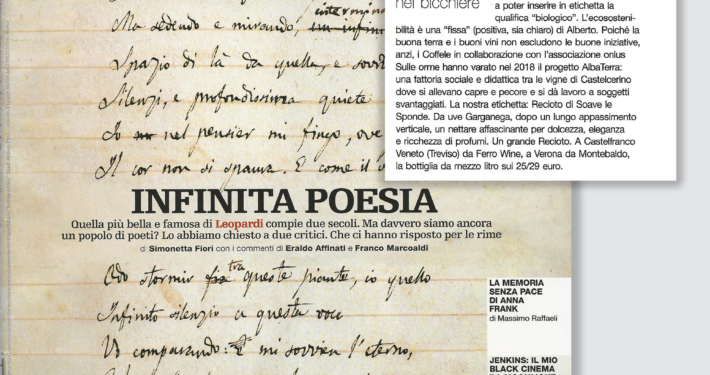 Ma sedendo e mirando,
Spazio di là da quella, e sovr
Silenzi, e profondissima quiete
Io nel pensier mi fingo, ove
Il cor non si spaura. E come il
INFINITA POESIA
Quella più bella e famosa di Leopardi compie due secoli. Ma davvero siamo ancora
un popolo di poeti? Lo abbiamo chiesto a due critici. Che ci hanno risposto per le rime
di Simonetta Fiori con i commenti di Eraldo Affinati e Franco Marcoaldi
Odo stormir tra queste piante, io quello
Infinito silenzio a questa voce
Vo comparando: e mi sovvien l'eterno,
LA MEMORIA
SENZA PACE
DI ANNA
FRANK
di Massimo Raffaeli
JENKINS: IL MIO
BLACK CINEMA
nel bicchiere
a poter inserire in etichetta la
qualifica “biologico”. L'ecososteni-
bilità è una “fissa” (positiva, sia chiaro) di Alberto. Poiché la
buona terra e i buoni vini non escludono le buone iniziative,
anzi, i Coffele in collaborazione con l'associazione onlus
Sulle orme hanno varato nel 2018 il progetto AlbaTerra:
una fattoria sociale e didattica tra le vigne di Castelcerino
dove si allevano capre e pecore e si dà lavoro a soggetti
svantaggiati. La nostra etichetta: Recioto di Soave le
Sponde. Da uve Garganega, dopo un lungo appassimento
verticale, un nettare affascinante per dolcezza, eleganza
e ricchezza di profumi. Un grande Recioto. A Castelfranco
Veneto (Treviso) da Ferro Wine, a Verona da Montebaldo,
la bottiglia da mezzo litro sui 25/29 euro.